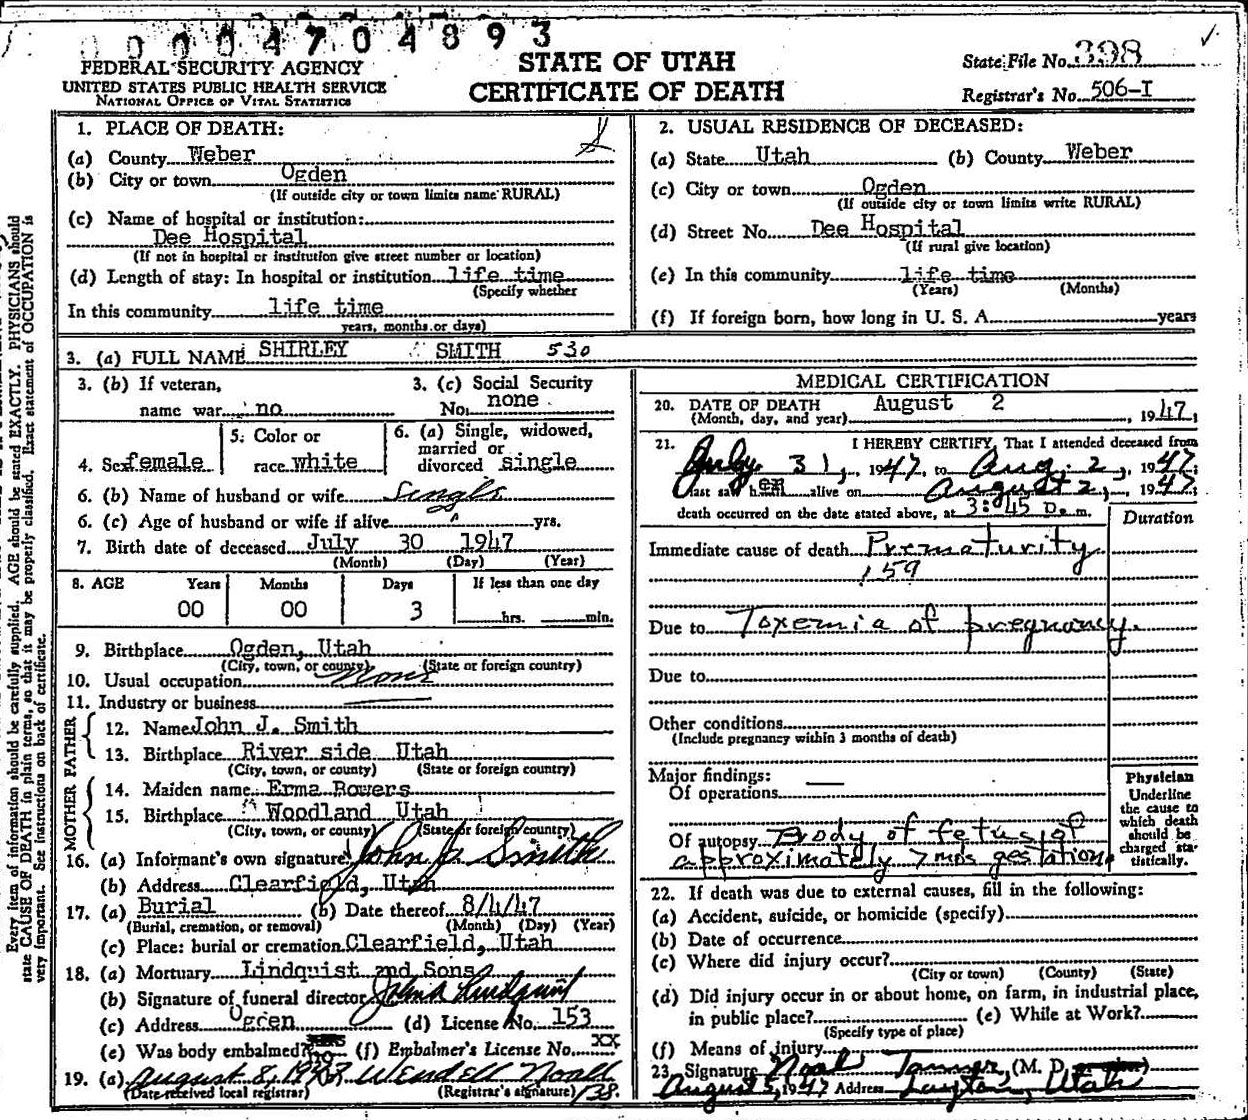 00004704893
FEDERAL SECURITY AGENCY
UNITED STATES PUBLIC HEALTH SERVICE
NATIONAL OFFICE OF VITAL STATISTICS
STATE OF UTAH
CERTIFICATE OF DEATH
State File No. 398
Registrar's No. 506-I
1. PLACE OF DEATH:
(a) County Weber
(b) City or town Ogden
(If outside city or town limits name RURAL)
(c) Name of hospital or institution:
Dee Hospital
(If not in hospital or institution give street number or location)
(d) Length of stay: In hospital or institution life time
(Specify whether
In this community life time
years, months or days)
2. USUAL RESIDENCE OF DECEASED:
(a) State Utah (b) County Weber
(c) City or town Ogden
(If outside city or town limits write RURAL)
(d) Street No. Dee Hospital
(If rural give location)
(e) In this community life time
(Years) (Months)
(f) If foreign born, how long in U. S. A. years
3. (a) FULL NAME SHIRLEY SMITH 530
3. (b) If veteran,
name war no
3. (c) Social Security
No. none
4. Sex female
5. Color or
race white
6. (a) Single, widowed,
married or
divorced single
6. (b) Name of husband or wife Single
6. (c) Age of husband or wife if alive yrs.
7. Birth date of deceased July 30 1947
(Month) (Day) (Year)
8. AGE Years Months Days If less than one day
00 00 3 hrs. min.
9. Birthplace Ogden, Utah
(City, town, or county) (State or foreign country)
10. Usual occupation None
11. Industry or business
FATHER
12. Name John J. Smith
13. Birthplace River side Utah
(City, town, or county) (State or foreign country)
MOTHER
14. Maiden name Erma Bowers
15. Birthplace Woodland Utah
(City, town, or county) (State or foreign country)
16. (a) Informant's own signature John J. Smith
(b) Address Clearfield, Utah
17. (a) Burial (b) Date thereof 8/4/47
(Burial, cremation, or removal) (Month) (Day) (Year)
(c) Place: burial or cremation Clearfield, Utah
18. (a) Mortuary Lindquist and Sons
(b) Signature of funeral director John A Lindquist
(c) Address Ogden (d) License No. 153
(e) Was body embalmed? no (f) Embalmer's License No. XX
19. (a) August 8, 1947 Wendell Noall
(Date received local registrar) (Registrar's signature) 138
MEDICAL CERTIFICATION
20. DATE OF DEATH August 2
(Month, day, and year) , 1947;
21. I HEREBY CERTIFY, That I attended deceased from
July 31, 1947, to Aug. 2, 1947;
last saw her alive on August 2, 1947
death occurred on the date stated above, at 3:45 p.m.
Duration
Immediate cause of death Prematurity
159
Due to Toxemia of pregnancy.
Due to
Other conditions
(Include pregnancy within 3 months of death)
Major findings:
Of operations
Of autopsy Body of fetus of
approximately 7 mos gestation.
Physician
Underline
the cause to
which death
should be
charged sta-
tistically.
22. If death was due to external causes, fill in the following:
(a) Accident, suicide, or homicide (specify)
(b) Date of occurrence
(c) Where did injury occur?
(City or town) (County) (State)
(d) Did injury occur in or about home, on farm, in industrial place,
in public place? (e) While at Work?
(Specify type of place)
(f) Means of injury
23. Signature Noal Tanner, (M. D.
August 5, 1947 Address Layton, Utah
Every item of information should be carefully supplied. AGE should be stated EXACTLY. PHYSICIANS should
state CAUSE OF DEATH in plain terms, so that it may be properly classified. Exact statement of OCCUPATION is
very important. See instructions on back of certificate.